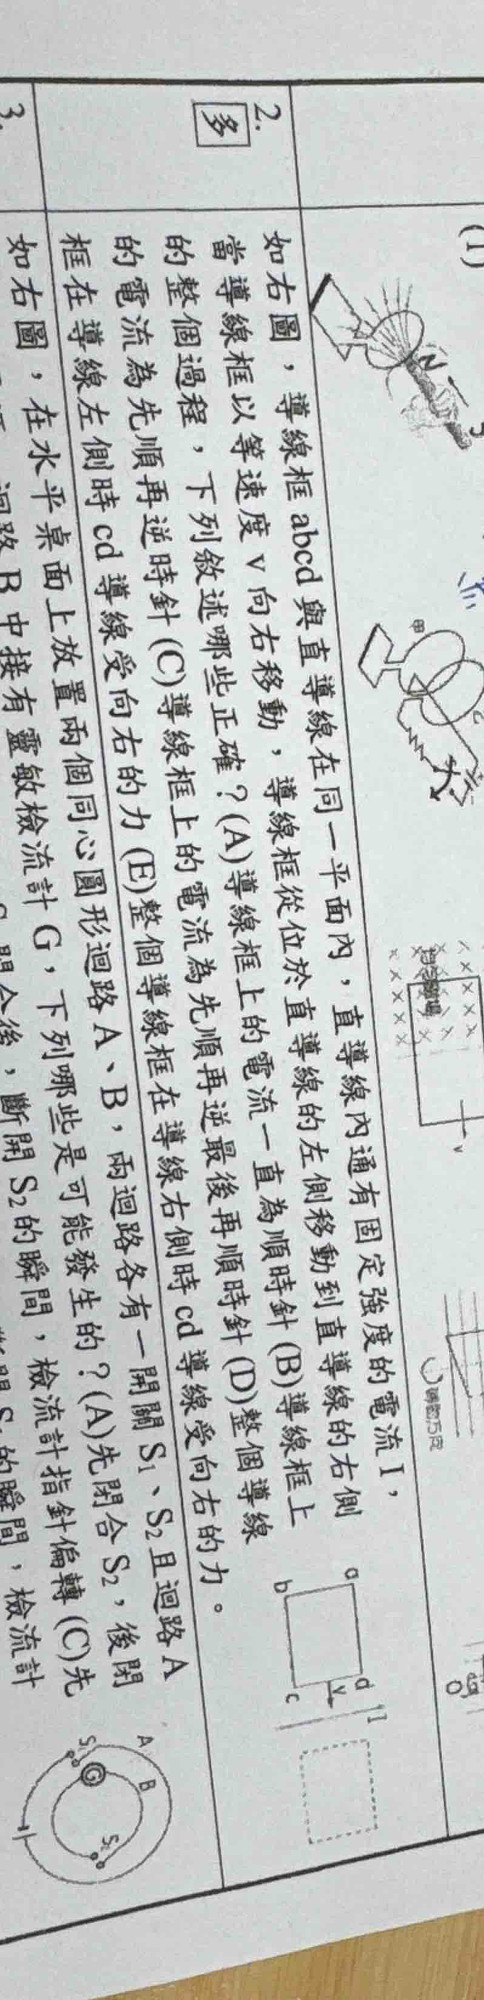 (1)
N
S
甲
× × × × ×
× × × × ×
v
2.
多
如右圖，導線框 abcd 與直導線在同一平面內，直導線內通有固定強度的電流 I，
當導線框以等速度 v 向右移動，導線框從位於直導線的左側移動到直導線的右側
的整個過程，下列敘述哪些正確？(A)導線框上的電流一直為順時針(B)導線框上
的電流為先順再逆時針(C)導線框上的電流為先順再逆最後再順時針(D)整個導線
框在導線左側時 cd 導線受向右的力(E)整個導線框在導線右側時 cd 導線受向右的力。
a
d
b
c
v
I
3.
如右圖，在水平桌面上放置兩個同心圓形迴路 A、B，兩迴路各有一開關 S1、S2 且迴路 A
迴路 B 中接有靈敏檢流計 G，下列哪些是可能發生的？(A)先閉合 S2，後閉
後，斷開 S2 的瞬間，檢流計指針偏轉(C)先
的瞬間，檢流計
A
B
S1
G
S2